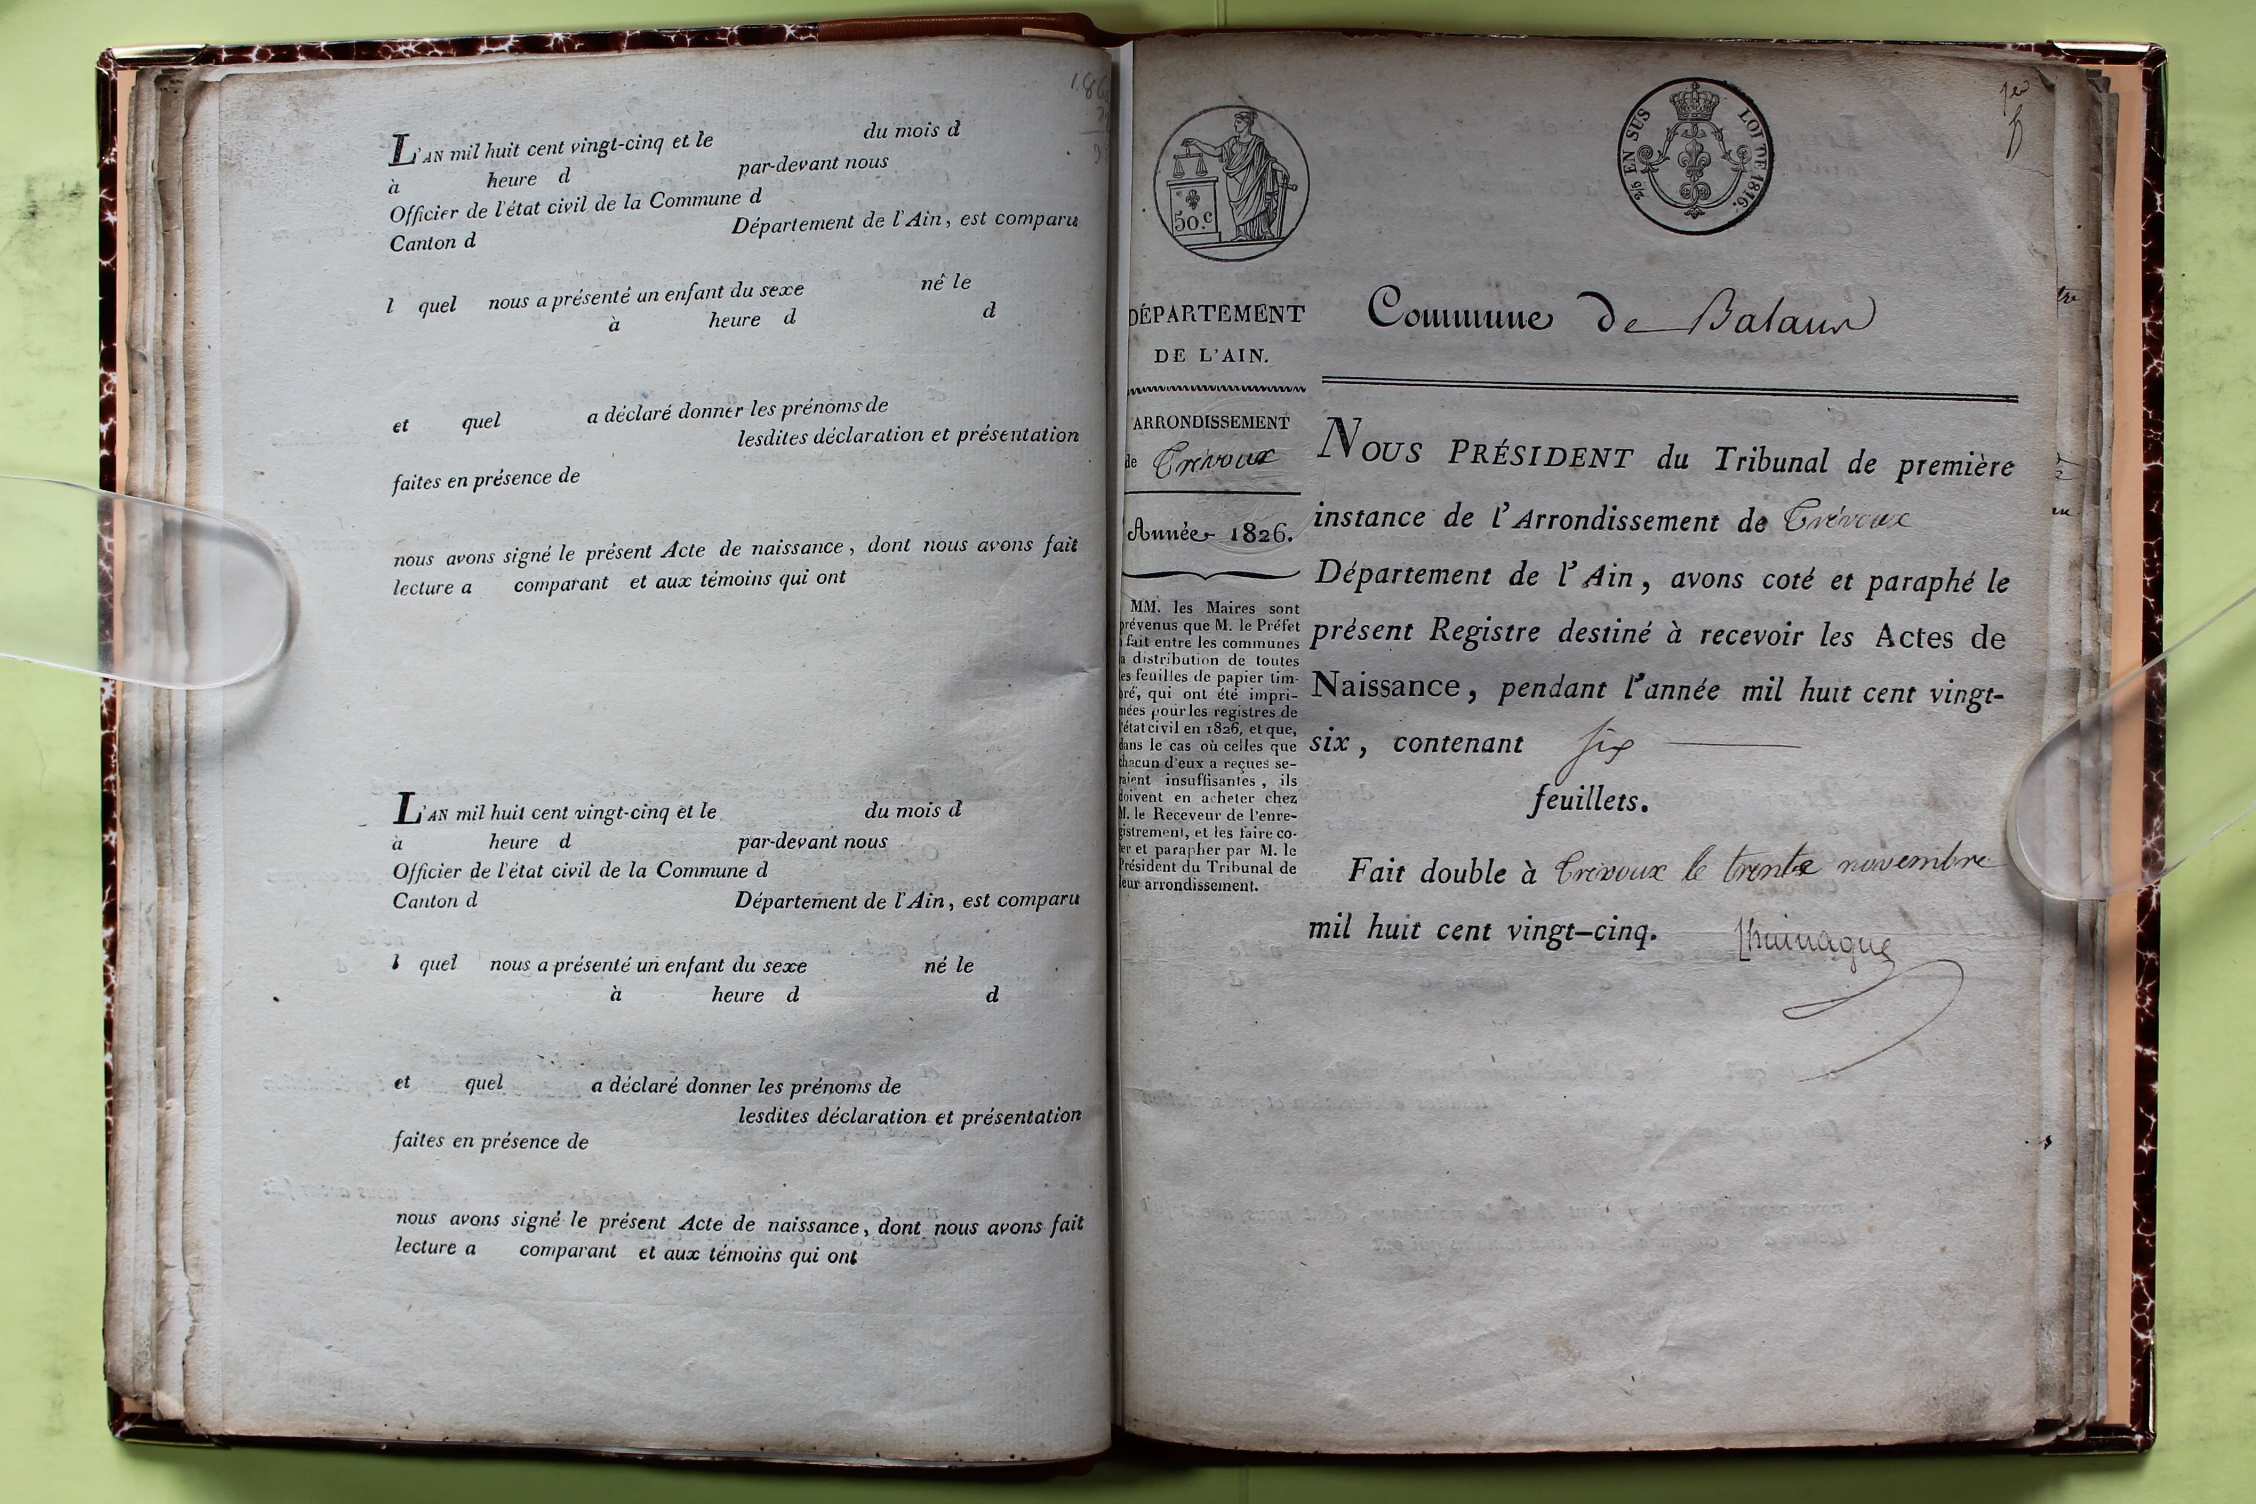 L'AN mil huit cent vingt-cinq et le du mois d
à heure d par-devant nous
Officier de l'état civil de la Commune d
Canton d Département de l'Ain, est comparu
l quel nous a présenté un enfant du sexe né le
à heure d d
et quel a déclaré donner les prénoms de
lesdites déclaration et présentation
faites en présence de
nous avons signé le présent Acte de naissance, dont nous avons fait
lecture a comparant et aux témoins qui ont
L'AN mil huit cent vingt-cinq et le du mois d
à heure d par-devant nous
Officier de l'état civil de la Commune d
Canton d Département de l'Ain, est comparu
l quel nous a présenté un enfant du sexe né le
à heure d d
et quel a déclaré donner les prénoms de
lesdites déclaration et présentation
faites en présence de
nous avons signé le présent Acte de naissance, dont nous avons fait
lecture a comparant et aux témoins qui ont
50.c
2/5 EN SUS LOI DE 1816.
1er
DÉPARTEMENT
DE L'AIN.
ARRONDISSEMENT
de Trévoux
Année 1826.
MM. les Maires sont
prévenus que M. le Préfet
a fait entre les communes
la distribution de toutes
les feuilles de papier tim-
bré, qui ont été impri-
mées pour les registres de
l'état civil en 1826, et que,
dans le cas où celles que
chacun d'eux a reçues se-
raient insuffisantes, ils
doivent en acheter chez
M. le Receveur de l'enre-
gistrement, et les faire co-
ter et parapher par M. le
Président du Tribunal de
leur arrondissement.
Commune de Balan
NOUS PRÉSIDENT du Tribunal de première
instance de l'Arrondissement de Trévoux
Département de l'Ain, avons coté et paraphé le
présent Registre destiné à recevoir les Actes de
Naissance, pendant l'année mil huit cent vingt-
six, contenant six
feuillets.
Fait double à Trévoux le trente novembre
mil huit cent vingt-cinq.